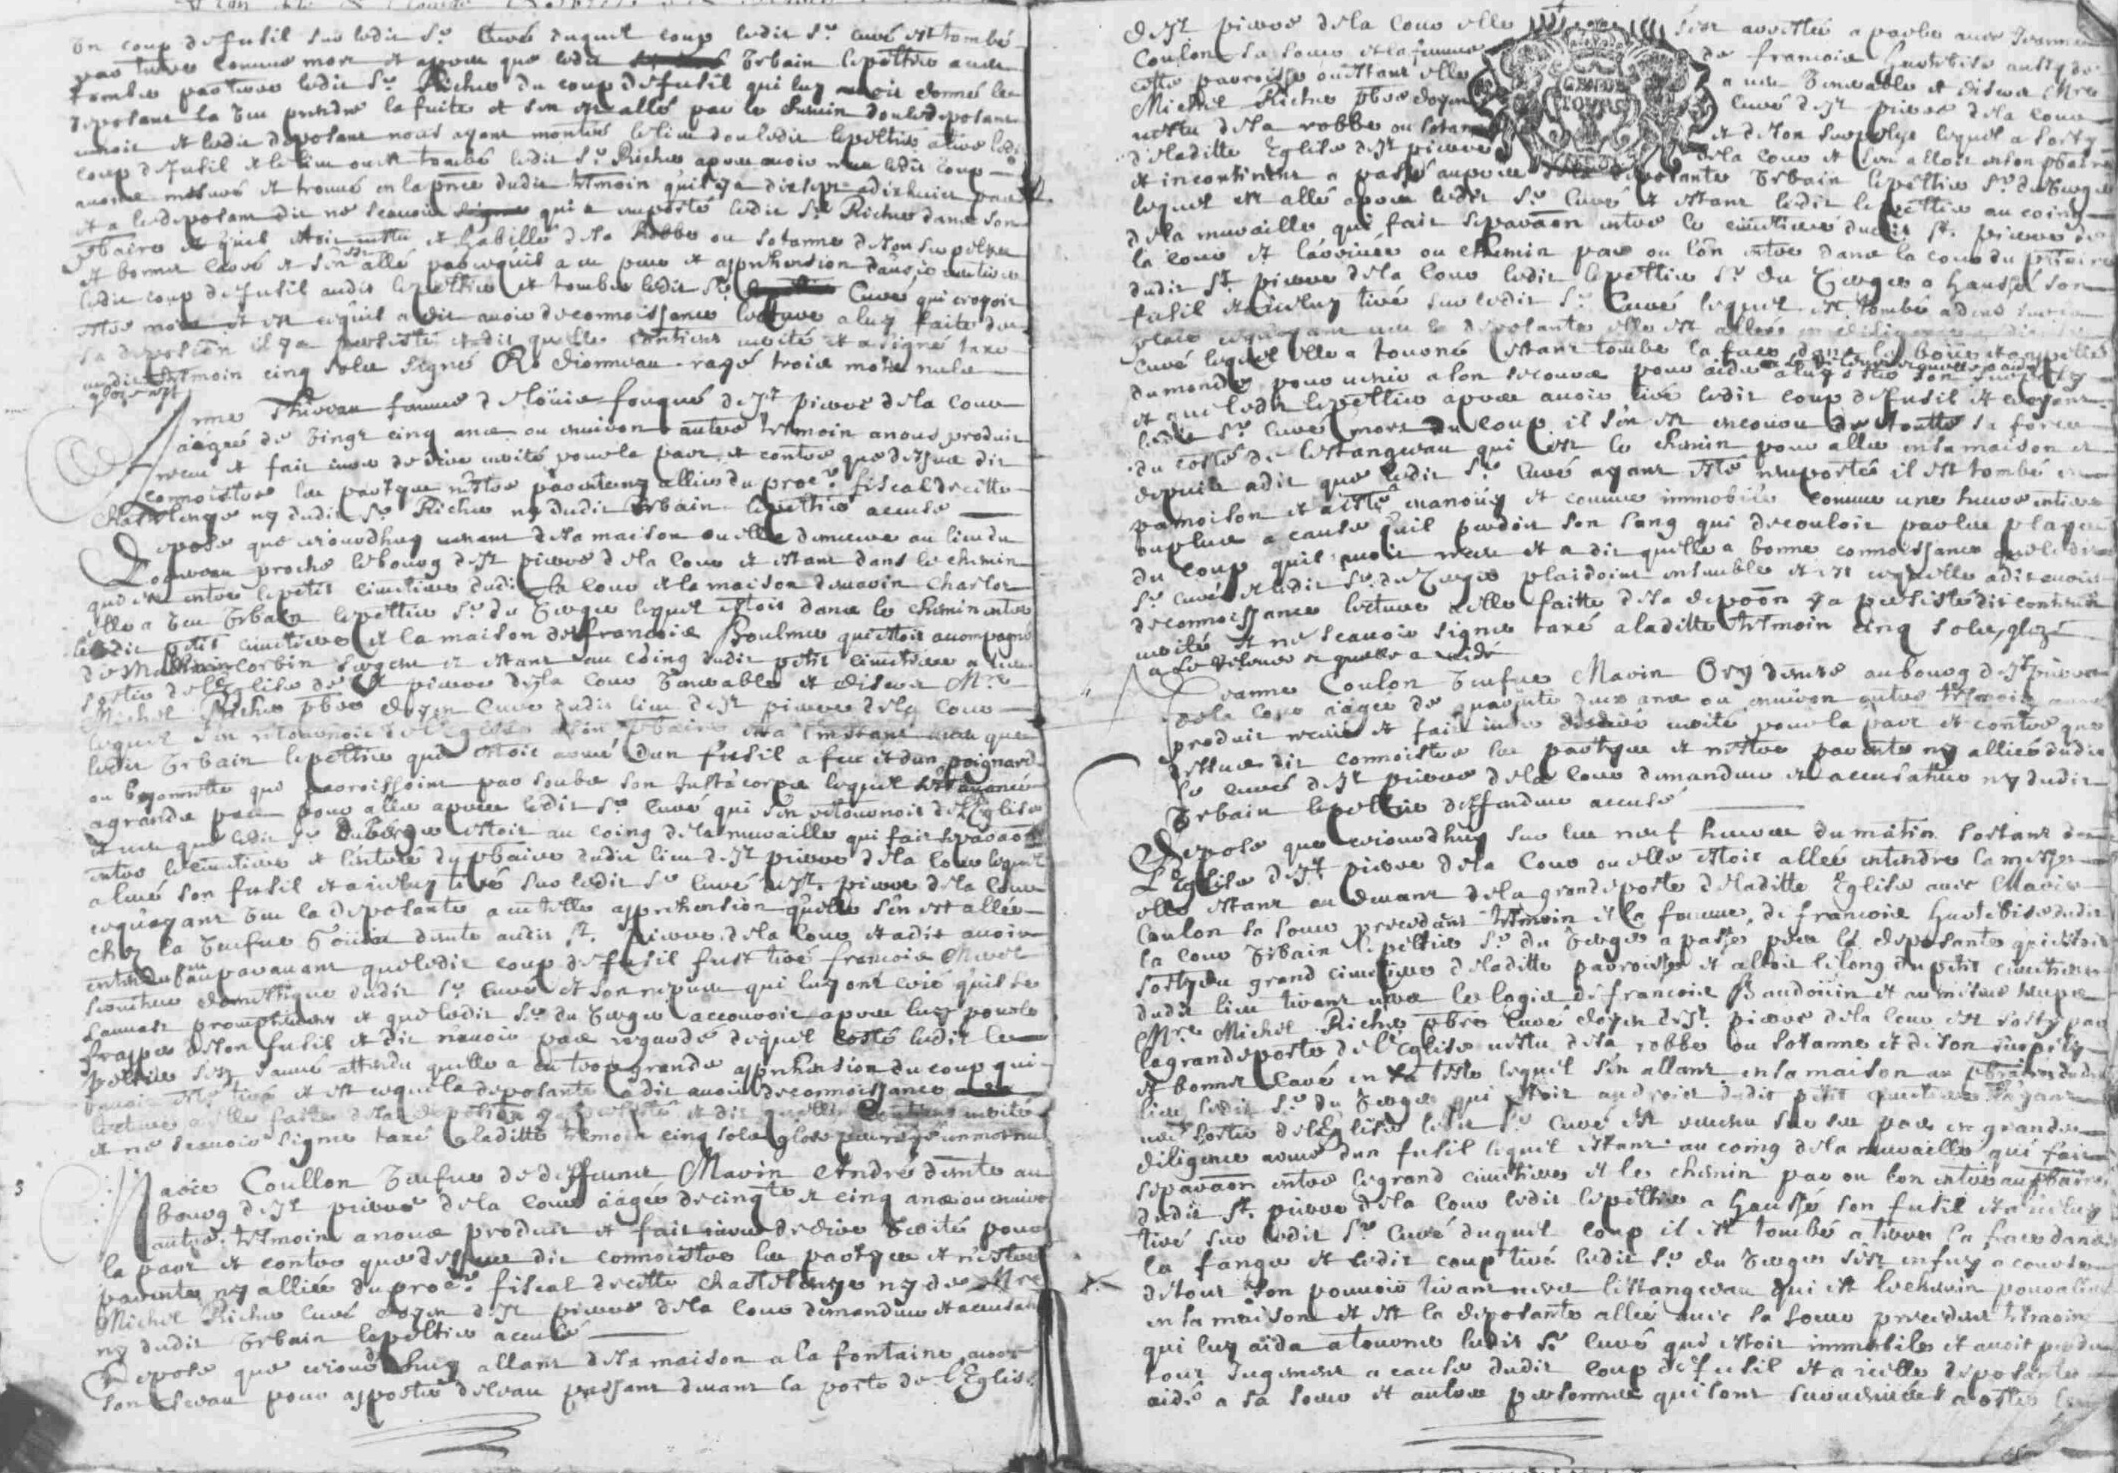 un coup de fusil sur ledit Sr Curé duquel coup ledit Sr Curé est tombé
par terre comme mort et apres que ledit Urbain lepeltier a veu
tomber par terre ledit Sr Riche du coup de fusil qui luy avoit donné le
deposant la veu prendre la fuite et sen est allé par le chemin dou le deposant
venoit et ledit deposant nous ayant montré le lieu dou ledit lepeltier a tiré ledit
coup de fusil et le lieu ou est tombé ledit Sr Riche apres avoir receu ledit coup
avons mesuré et trouvé en la pnce dudit tesmoin quil y a dix sept a dix huict pas
et a le deposant dit ne scavoir qui a emporté ledit Sr Riche dans son
pbaire et quil estoit vestu et habillé de sa Robbe ou sotanne de son surpelye
et bonnet carré et sen est allé parcequil a eu peur et apprehension davoir veu tirer
ledit coup de fusil audit lepeltier et tomber ledit Sr Curé qui croyoit
estre mort et est ce quil a dit avoir de connoissance lecture a luy faite de
sa deposition il y a persisté et dit quelle contient verité et a signé taxé
audit tesmoin cinq sols signé R. Dionneau rayé trois mots nuls
glozé est
Anne Thireau femme de Loüis fouqué de St pierre de la Cour
aagée de vingt cinq ans ou environ autre tesmoin a nous produit
receu et fait jurer de dire verité pour la part et contre que dessus dit
connoistre les partyes nestre parente ny alliée du procr fiscal de cette
Chastelenye ny dudit Sr Riche ny dudit Urbain lepeltier accusé
Depose que cejourdhuy venant de sa maison ou elle demeure au lieu du
proche le bourg de St pierre de la Cour et estant dans le chemin
qui est entre le petit cimetiere dudit la Cour et la maison de marin Charlot
elle a veu Urbain lepeltier Sr du Verger lequel estoit dans le chemin entre
ledit petit cimetiere et la maison de francois Boulmer qui estoit accompagné
de Mathurin Corbin sergent et estant au coing dudit petit cimetiere a veu
sortir de lEglise de St pierre de la Cour venerable et discret Mre
Michel Riche pbre doyen Curé dudit lieu de St pierre de la Cour
lequel sen retournoit de lEglise a son pbaire et a linstant veu que
ledit Urbain lepeltier qui estoit armé dun fusil a feu et dun poignard
ou bayonnette qui paroissoient par soubz son Justacorps lequel sest avancé
a grands pas pour aller apres ledit Sr Curé qui sen retournoit de lEglise
et veu que ledit Sr du Verger estoit au coing de la muraille qui fait separaon
entre le cimetiere et lentrée du pbaire dudit lieu de St pierre de la Cour lequel
a levé son fusil et a iceluy tiré sur ledit Sr Curé de St pierre de la Cour
ce quayant veu la deposante a eu telle apprehension quelle sen est allée
chez la veufve Goüin demte audit St Pierre de la Cour et a dit avoir
entendu auparavant que ledit coup de fusil fust tiré francois
serviteur domestique dudit Sr Curé et son nepveu qui luy ont crié quil se
sauvast promptement et que ledit Sr du Verger accouroit apres luy pour le
frapper de son fusil et dit navoir pas regardé de quel costé ledit le
peltier sest sauvé attendu quelle a eu trop grande apprehension du coup qui
avoit esté tiré et est ce que la deposante a dit avoir de connoissance
lecture a elle faite de sa deposition y a persisté et dit quelle contient verité
et ne scavoir signer taxé a laditte tesmoin cinq sols gloze rayé un mot nul
Marie Coullon veufve de deffunt Marin André demte au
bourg de St pierre de la Cour aagée de cinqte et cinq ans ou environ
autre tesmoin a nous produit et fait jurer de dire verité pour
la part et contre que dessus dit connoistre les partyes et nestre
parente ny alliée du procr fiscal de cette Chastelenye ny de Mre
Michel Riche Curé doyen de St pierre de la Cour demandeur et accusateur
ny dudit Urbain lepeltier accusé
Depose que cejourdhuy allant de sa maison a la fontaine avec
son seau pour apporter de leau passant devant la porte de lEglise
de St pierre de la Cour elle sest arrestée a parler avec Jeanne
Coulon sa soeur et la femme de francois Hurtebise aussy de
cette parroisse ou estant elle a veu venerable et discret Mre
Michel Riche pbre doyen Curé de St pierre de la Cour
vestu de sa robbe ou sotanne et de son surpelye lequel a sorty
de laditte Eglise de St pierre de la Cour et sen alloit en son pbaire
et incontinent a passé aupres de la deposante Urbain lepeltier Sr du Verger
lequel est allé apres ledit Sr Curé et estant ledit lepeltier au coing
de la muraille qui fait separaon entre le cimetiere dudit St pierre de
la Cour et larrivée ou chemin par ou lon entre dans la cour du pbaire
dudit St pierre de la Cour ledit lepeltier Sr du Verger a haussé son
fusil et a iceluy tiré sur ledit Sr Curé lequel est tombé
ce quayant veu la deposante elle est allée en diligence
Curé lequel elle a tourné estant tombé la face dans la boue et appellé
du monde pour venir a son secours pour aider
et que ledit lepeltier apres avoir tiré ledit coup de fusil et croyant
ledit Sr Curé mort du coup il sen est encouru de toutte sa force
du costé de lestangereau qui est le chemin pour aller en sa maison et
depuis a dit que ledit Sr Curé ayant esté emporté il est tombé en
pamoison et a esté evanouy et comme immobile comme une heure entiere
ou plus a cause quil perdoit son sang qui decouloit par les playes
du coup quil avoit receu et a dit quelle a bonne connoissance que ledit
Sr Curé et ledit Sr du Verger plaidoient ensemble et est ce quelle a dit avoir
de connoissance lecture a elle faitte de sa depoon y a persisté dit contenir
verité et ne scavoir signer taxé a laditte tesmoin cinq sols, glozé
a le relever et quelle a aidé
Jeanne Coulon veufve Marin Ory demte au bourg de St pierre
de la Cour aagée de quarente deux ans ou environ autre tesmoin a nous
produit receu et fait jurer de dire verité pour la part et contre que
dessus dit connoistre les partyes et nestre parente ny alliée dudit
Sr Curé de St pierre de la Cour demandeur et accusateur ny dudit
Urbain lepeltier deffendeur accusé
Depose que cejourdhuy sur les neuf heures du matin sortant de
lEglise de St pierre de la Cour ou elle estoit allée entendre la messe
elle estant au devant de la grande porte de laditte Eglise avec Marie
Coulon sa soeur precedent tesmoin et la femme de francois Hurtebise dudit
la Cour Urbain lepeltier Sr du Verger a passé pres la deposante qui estoit
sorty du grand cimetiere de laditte parroisse et alloit le long du petit cimetiere
dudit lieu tirant vers le logis de francois Baudoüin et au mesme temps
Mre Michel Riche pbre Curé doyen de St pierre de la Cour est sorty par
la grande porte de lEglise vestu de sa robbe ou sotanne et de son surpely
et bonnet carré en sa teste lequel sen allant en sa maison au pbaire dudit
lieu ledit Sr du Verger qui estoit au droit dudit petit cimetiere layant
veu sortir de lEglise ledit Sr Curé est venu sur ses pas en grande
diligence armé dun fusil lequel estant au coing de la muraille qui fait
separaon entre le grand cimetiere et le chemin par ou lon entre au pbaire
dudit St pierre de la Cour ledit lepeltier a haussé son fusil et a iceluy
tiré sur ledit Sr Curé duquel coup il est tombé a terre la face dans
la fange et ledit coup tiré ledit Sr du Verger sest enfuy a courir
de tout son pouvoir tirant vers lestangereau qui est le chemin pour aller
en sa maison et est la deposante allée avec sa soeur precedent tesmoin
qui luy aida a tourner ledit Sr Curé qui estoit immobile et avoit perdu
tout jugement a cause dudit coup de fusil et a icelle deposante
aidé a sa soeur et autres personnes qui sont survenues a oster le
GEN DE
TOURS